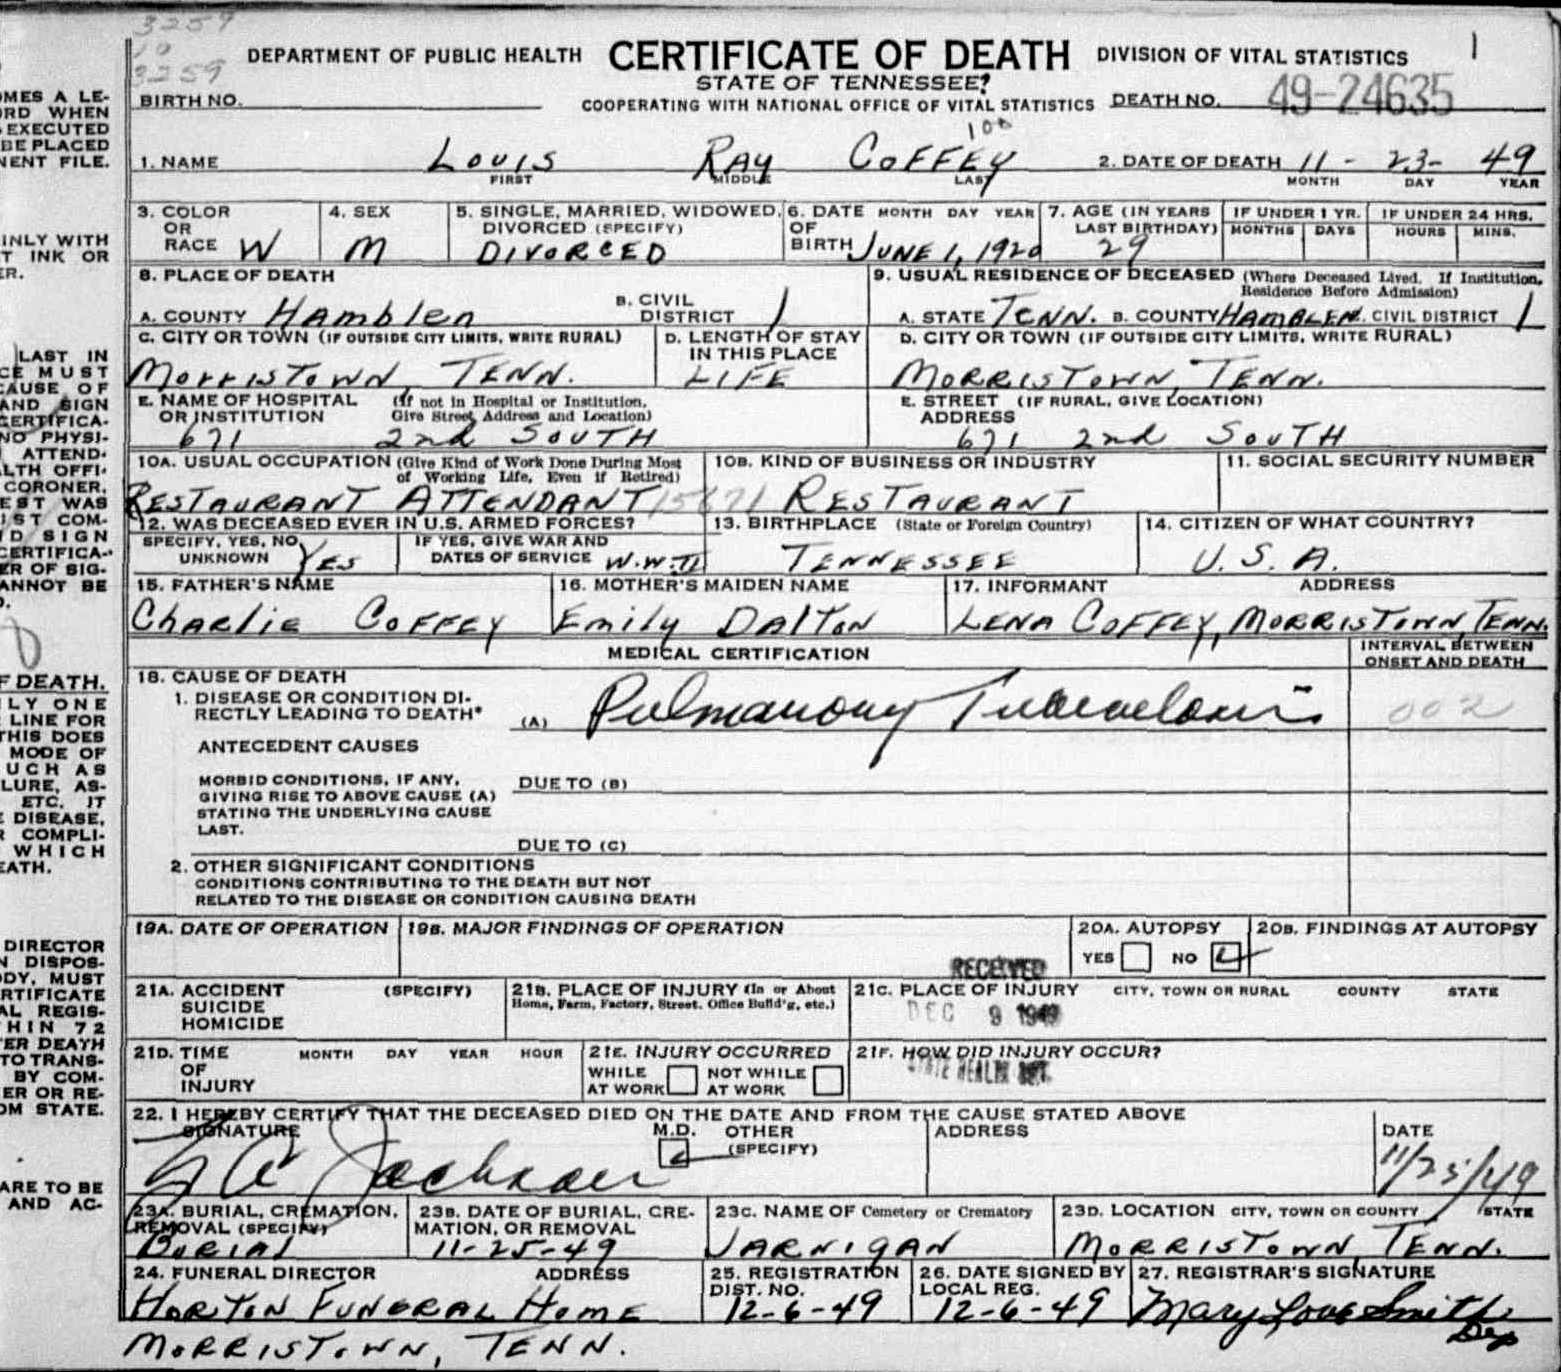 3259
10
3259
DEPARTMENT OF PUBLIC HEALTH CERTIFICATE OF DEATH DIVISION OF VITAL STATISTICS 1
STATE OF TENNESSEE?
BIRTH NO. COOPERATING WITH NATIONAL OFFICE OF VITAL STATISTICS DEATH NO. 49-24635
100
1. NAME LOUIS RAY COFFEY 2. DATE OF DEATH 11 - 23- 49
FIRST MIDDLE LAST MONTH DAY YEAR
3. COLOR OR RACE W 4. SEX M 5. SINGLE, MARRIED, WIDOWED, DIVORCED (SPECIFY) DIVORCED 6. DATE OF BIRTH MONTH DAY YEAR JUNE 1, 1920 7. AGE (IN YEARS LAST BIRTHDAY) 29 IF UNDER 1 YR. MONTHS DAYS IF UNDER 24 HRS. HOURS MINS.
8. PLACE OF DEATH 9. USUAL RESIDENCE OF DECEASED (Where Deceased Lived. If Institution, Residence Before Admission)
A. COUNTY Hamblen B. CIVIL DISTRICT 1 A. STATE TENN. B. COUNTY HAMBLEN C. CIVIL DISTRICT 1
C. CITY OR TOWN (IF OUTSIDE CITY LIMITS, WRITE RURAL) D. LENGTH OF STAY IN THIS PLACE D. CITY OR TOWN (IF OUTSIDE CITY LIMITS, WRITE RURAL)
MORRISTOWN, TENN. LIFE MORRISTOWN, TENN.
E. NAME OF HOSPITAL OR INSTITUTION (If not in Hospital or Institution, Give Street Address and Location) E. STREET ADDRESS (IF RURAL, GIVE LOCATION)
671 2nd SOUTH 671 2nd SOUTH
10A. USUAL OCCUPATION (Give Kind of Work Done During Most of Working Life, Even if Retired) 10B. KIND OF BUSINESS OR INDUSTRY 11. SOCIAL SECURITY NUMBER
RESTAURANT ATTENDANT 15671 RESTAURANT
12. WAS DECEASED EVER IN U.S. ARMED FORCES? 13. BIRTHPLACE (State or Foreign Country) 14. CITIZEN OF WHAT COUNTRY?
SPECIFY, YES, NO, UNKNOWN YES IF YES, GIVE WAR AND DATES OF SERVICE W.W.II TENNESSEE U.S.A.
15. FATHER'S NAME 16. MOTHER'S MAIDEN NAME 17. INFORMANT ADDRESS
Charlie COFFEY Emily DALTON LENA COFFEY, MORRISTOWN, TENN.
MEDICAL CERTIFICATION INTERVAL BETWEEN ONSET AND DEATH
18. CAUSE OF DEATH
1. DISEASE OR CONDITION DIRECTLY LEADING TO DEATH* (A) Pulmonary Tuberculosis 002
ANTECEDENT CAUSES
MORBID CONDITIONS, IF ANY, GIVING RISE TO ABOVE CAUSE (A) STATING THE UNDERLYING CAUSE LAST. DUE TO (B)
DUE TO (C)
2. OTHER SIGNIFICANT CONDITIONS
CONDITIONS CONTRIBUTING TO THE DEATH BUT NOT
RELATED TO THE DISEASE OR CONDITION CAUSING DEATH
19A. DATE OF OPERATION 19B. MAJOR FINDINGS OF OPERATION 20A. AUTOPSY 20B. FINDINGS AT AUTOPSY
YES NO
RECEIVED
21A. ACCIDENT SUICIDE HOMICIDE (SPECIFY) 21B. PLACE OF INJURY (In or About Home, Farm, Factory, Street, Office Build'g, etc.) 21C. PLACE OF INJURY CITY, TOWN OR RURAL COUNTY STATE
DEC 9 1949
21D. TIME OF INJURY MONTH DAY YEAR HOUR 21E. INJURY OCCURRED WHILE AT WORK NOT WHILE AT WORK 21F. HOW DID INJURY OCCUR?
STATE HEALTH DEPT.
22. I HEREBY CERTIFY THAT THE DECEASED DIED ON THE DATE AND FROM THE CAUSE STATED ABOVE
SIGNATURE M.D. OTHER (SPECIFY) ADDRESS DATE
Jackson 11/25/49
23A. BURIAL, CREMATION, REMOVAL (SPECIFY) 23B. DATE OF BURIAL, CREMATION, OR REMOVAL 23C. NAME OF Cemetery or Crematory 23D. LOCATION CITY, TOWN OR COUNTY STATE
BURIAL 11-25-49 JARNIGAN MORRISTOWN, TENN.
24. FUNERAL DIRECTOR ADDRESS 25. REGISTRATION DIST. NO. 26. DATE SIGNED BY LOCAL REG. 27. REGISTRAR'S SIGNATURE
HORTON FUNERAL HOME 12-6-49 12-6-49 Mary Love Smith
Dep
MORRISTOWN, TENN.
OMES A LE-
ORD WHEN
EXECUTED
BE PLACED
NENT FILE.
INLY WITH
T INK OR
ER.
LAST IN
CE MUST
CAUSE OF
AND SIGN
CERTIFICA-
NO PHYSI-
ATTEND-
LTH OFFI-
CORONER,
EST WAS
IST COM-
D SIGN
CERTIFICA-
ER OF SIG-
ANNOT BE
D.
F DEATH.
LY ONE
LINE FOR
THIS DOES
MODE OF
UCH AS
LURE, AS-
ETC. IT
E DISEASE,
R COMPLI-
WHICH
EATH.
DIRECTOR
N DISPOS-
DY, MUST
RTIFICATE
AL REGIS-
THIN 72
ER DEATH
TO TRANS-
BY COM-
ER OR RE-
OM STATE.
ARE TO BE
AND AC-